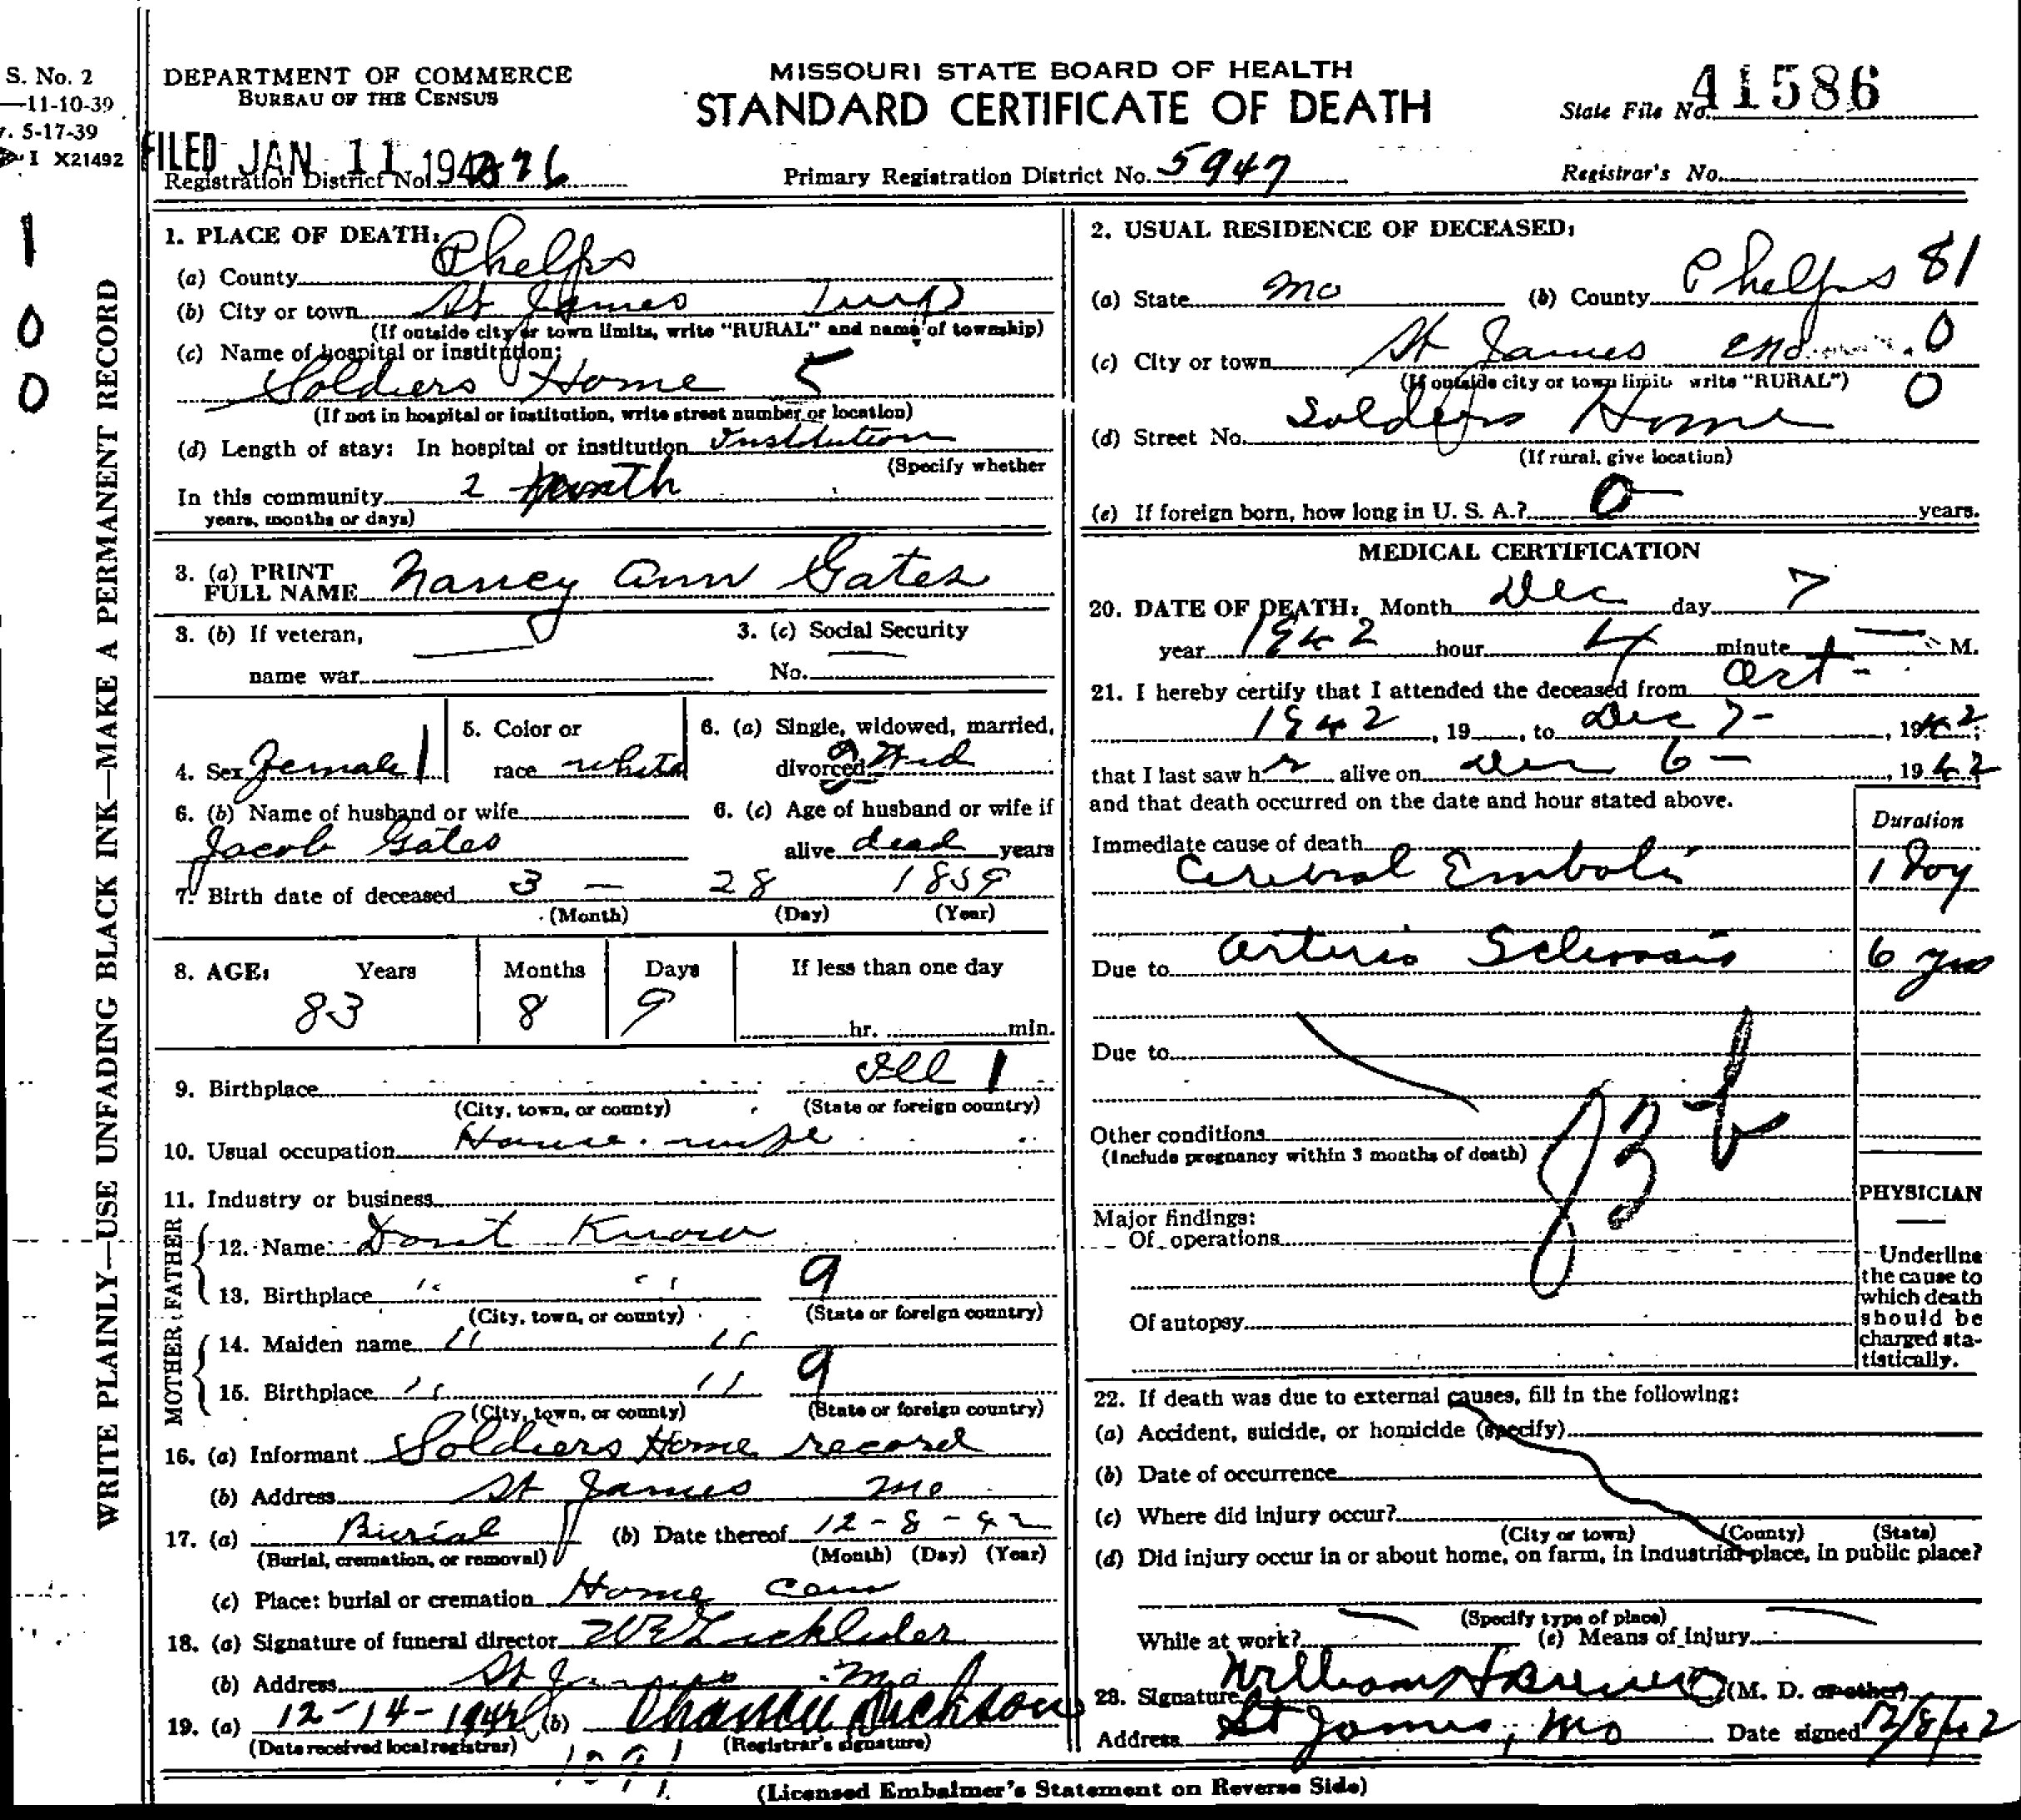 S. No. 2
—11-10-39
v. 5-17-39
I X21492
DEPARTMENT OF COMMERCE
BUREAU OF THE CENSUS
MISSOURI STATE BOARD OF HEALTH
STANDARD CERTIFICATE OF DEATH
State File No. 41586
FILED JAN 11 194
Registration District No.
Primary Registration District No. 5947
Registrar's No.
1
0
0
WRITE PLAINLY—USE UNFADING BLACK INK—MAKE A PERMANENT RECORD
1. PLACE OF DEATH:
(a) County Phelps
(b) City or town St James Twp
(If outside city or town limits, write "RURAL" and name of township)
(c) Name of hospital or institution:
Soldiers Home 5
(If not in hospital or institution, write street number or location)
(d) Length of stay: In hospital or institution Institution
(Specify whether
In this community 2 month
years, months or days)
3. (a) PRINT
FULL NAME Nancy Ann Gates
3. (b) If veteran,
name war
3. (c) Social Security
No.
4. Sex Female 1
5. Color or
race white
6. (a) Single, widowed, married,
divorced Wid
6. (b) Name of husband or wife
Jacob Gates
6. (c) Age of husband or wife if
alive dead years
7. Birth date of deceased 3 — 28 1859
(Month) (Day) (Year)
8. AGE: Years Months Days If less than one day
83 8 9 hr. min.
9. Birthplace Ill 1
(City, town, or county) (State or foreign country)
10. Usual occupation House wife
11. Industry or business
FATHER
12. Name Dont Know
13. Birthplace " " 9
(City, town, or county) (State or foreign country)
MOTHER
14. Maiden name " "
15. Birthplace " " 9
(City, town, or county) (State or foreign country)
16. (a) Informant Soldiers Home record
(b) Address St James Mo
17. (a) Burial (b) Date thereof 12-8-42
(Burial, cremation, or removal) (Month) (Day) (Year)
(c) Place: burial or cremation Home Cem
18. (a) Signature of funeral director
(b) Address St James Mo
19. (a) 12-14-1942 (b) Dickson
(Date received local registrar) (Registrar's signature)
2. USUAL RESIDENCE OF DECEASED:
(a) State Mo (b) County Phelps 81
(c) City or town St James 0
(If outside city or town limits write "RURAL") 0
(d) Street No. Soldiers Home
(If rural, give location)
(e) If foreign born, how long in U. S. A.? 0 years.
MEDICAL CERTIFICATION
20. DATE OF DEATH: Month Dec day 7
year 1942 hour 4 minute M.
21. I hereby certify that I attended the deceased from Oct -
1942, 19 , to Dec 7-, 1942;
that I last saw h r alive on Dec 6 —, 1942
and that death occurred on the date and hour stated above.
Duration
Immediate cause of death
Cerebral Emboli 1 Day
Due to Arterio Sclerosis 6 yrs
Due to
Other conditions
(Include pregnancy within 3 months of death)
Major findings:
Of operations
Of autopsy
PHYSICIAN
Underline
the cause to
which death
should be
charged sta-
tistically.
22. If death was due to external causes, fill in the following:
(a) Accident, suicide, or homicide (specify)
(b) Date of occurrence
(c) Where did injury occur?
(City or town) (County) (State)
(d) Did injury occur in or about home, on farm, in industrial place, in public place?
(Specify type of place)
While at work? (e) Means of injury
23. Signature William (M. D. or other)
Address St James, Mo Date signed 12/8/42
(Licensed Embalmer's Statement on Reverse Side)